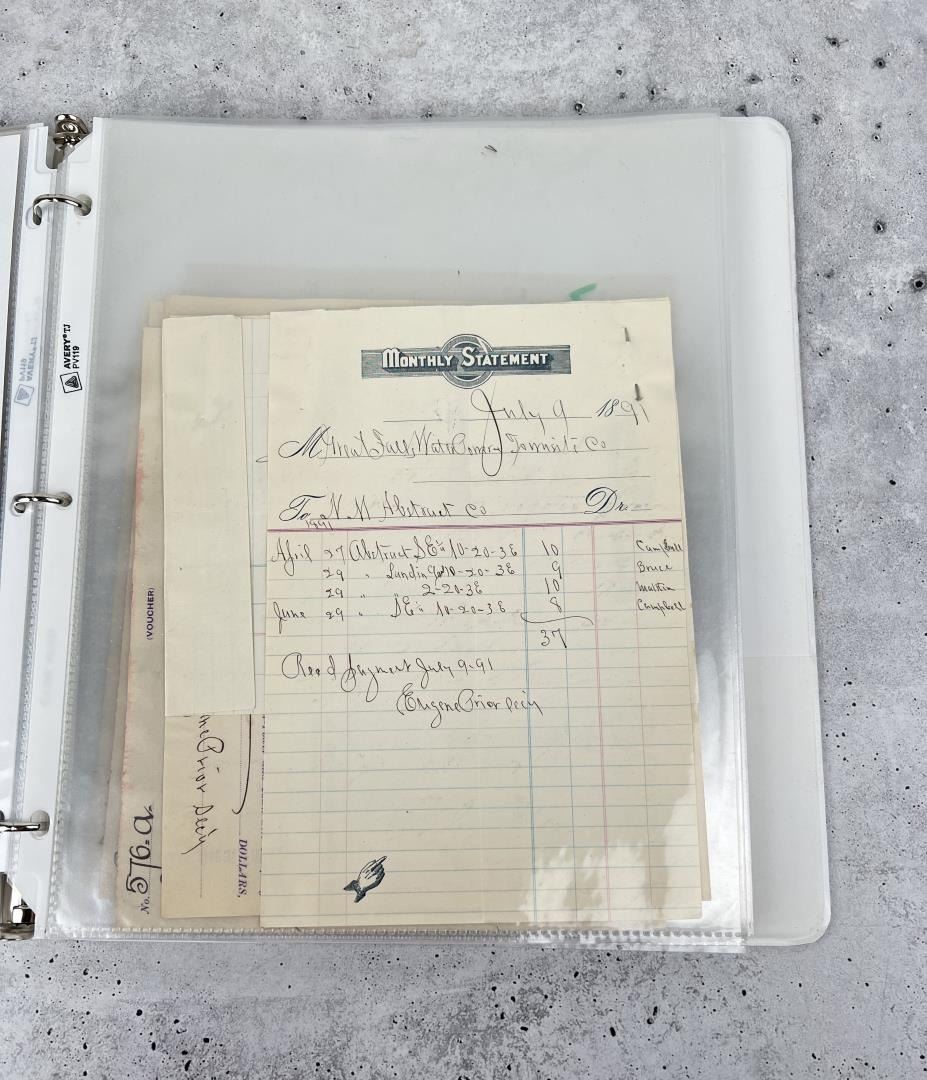 MONTHLY STATEMENT
July 9 1891
M Great Falls Water Power & Townsite Co
To N. M Abstract Co Dr.
1891
April 27 Abstract SE¼ 10-20-3E 10 Campbell
29 " Land in 10-20-3E 9 Bruce
29 " " 2-20-3E 10
June 29 " SE¼ 10-20-3E 8 Campbell
37
Rec'd payment July 9-91
Eugene Prior Secy
AVERY® TI
PV119
(VOUCHER)
Prior Secy
DOLLARS.
No.